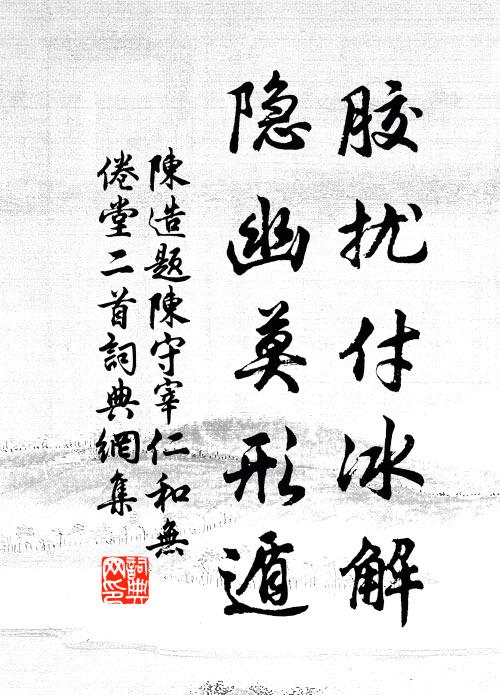 胶扰付冰解
隐幽莫形遁
陳造題陳守宰仁和無
倦堂二首詞典網集
詞典網印